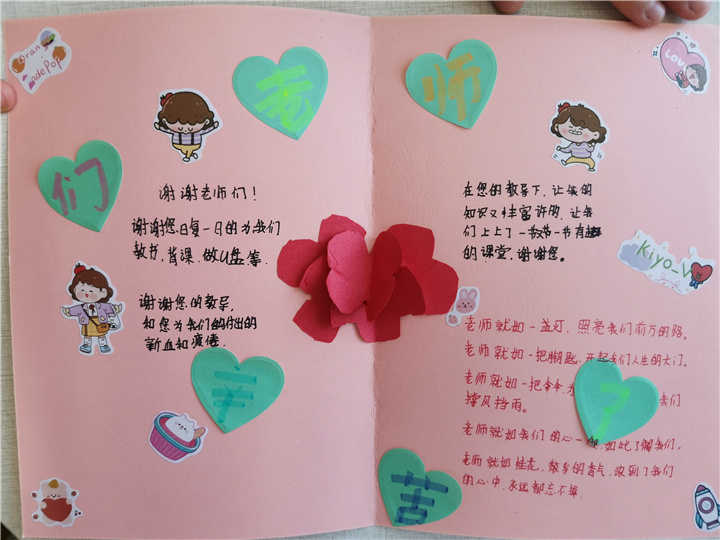 老
师
们
辛
苦
了
谢谢老师们！
谢谢您日复一日的为我们
教书，背课，做U盘等．
谢谢您的教导，
和您为我们的付出的
新血和演倦．
在您的教导下，让我的
知识又丰富许的，让我
们上上了一节一节有趣
的课堂，谢谢您。
老师就如一盏灯，照亮我们前方的路。
老师就如一把钥匙，开起我们人生的大门。
老师就如一把伞，为我们
撑风挡雨。
老师就如我们的心一般，如此了解我们。
老师就如桂花，散多的香气，放到了我们
的心中，永远都忘不掉．
LOVE
Kiyo_V